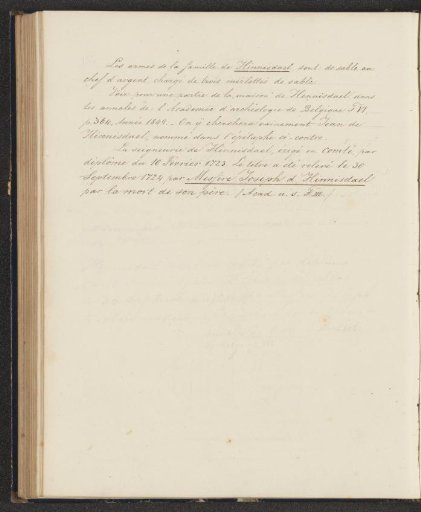 Les armes de la famille de Hinnisdael sont de sable au
chef d'argent chargé de trois merlettes de sable.
Voir pour une partie de la maison de Hennisdael dans
les annales de l'Académie d'archéologie de Belgique T VI
p. 364. Année 1849. On y cherchera vainement Jean de
Hinnisdael, nommé dans l'épitaphe ci-contre.
La seigneurie de Hinnisdael, érigé en Comté, par
diplôme du 10 Février 1723. Le titre a été relevé le 30
Septembre 1724 par Messire Joseph d'Hinnisdael
par la mort de son père. (Acad. u. s.